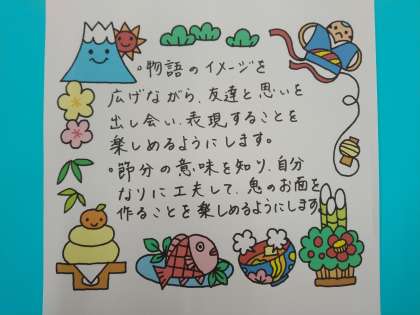 ・物語のイメージを
広げながら、友達と思いを
出し合い、表現することを
楽しめるようにします。
・節分の意味を知り、自分
なりに工夫して、鬼のお面を
作ることを楽しめるようにします。